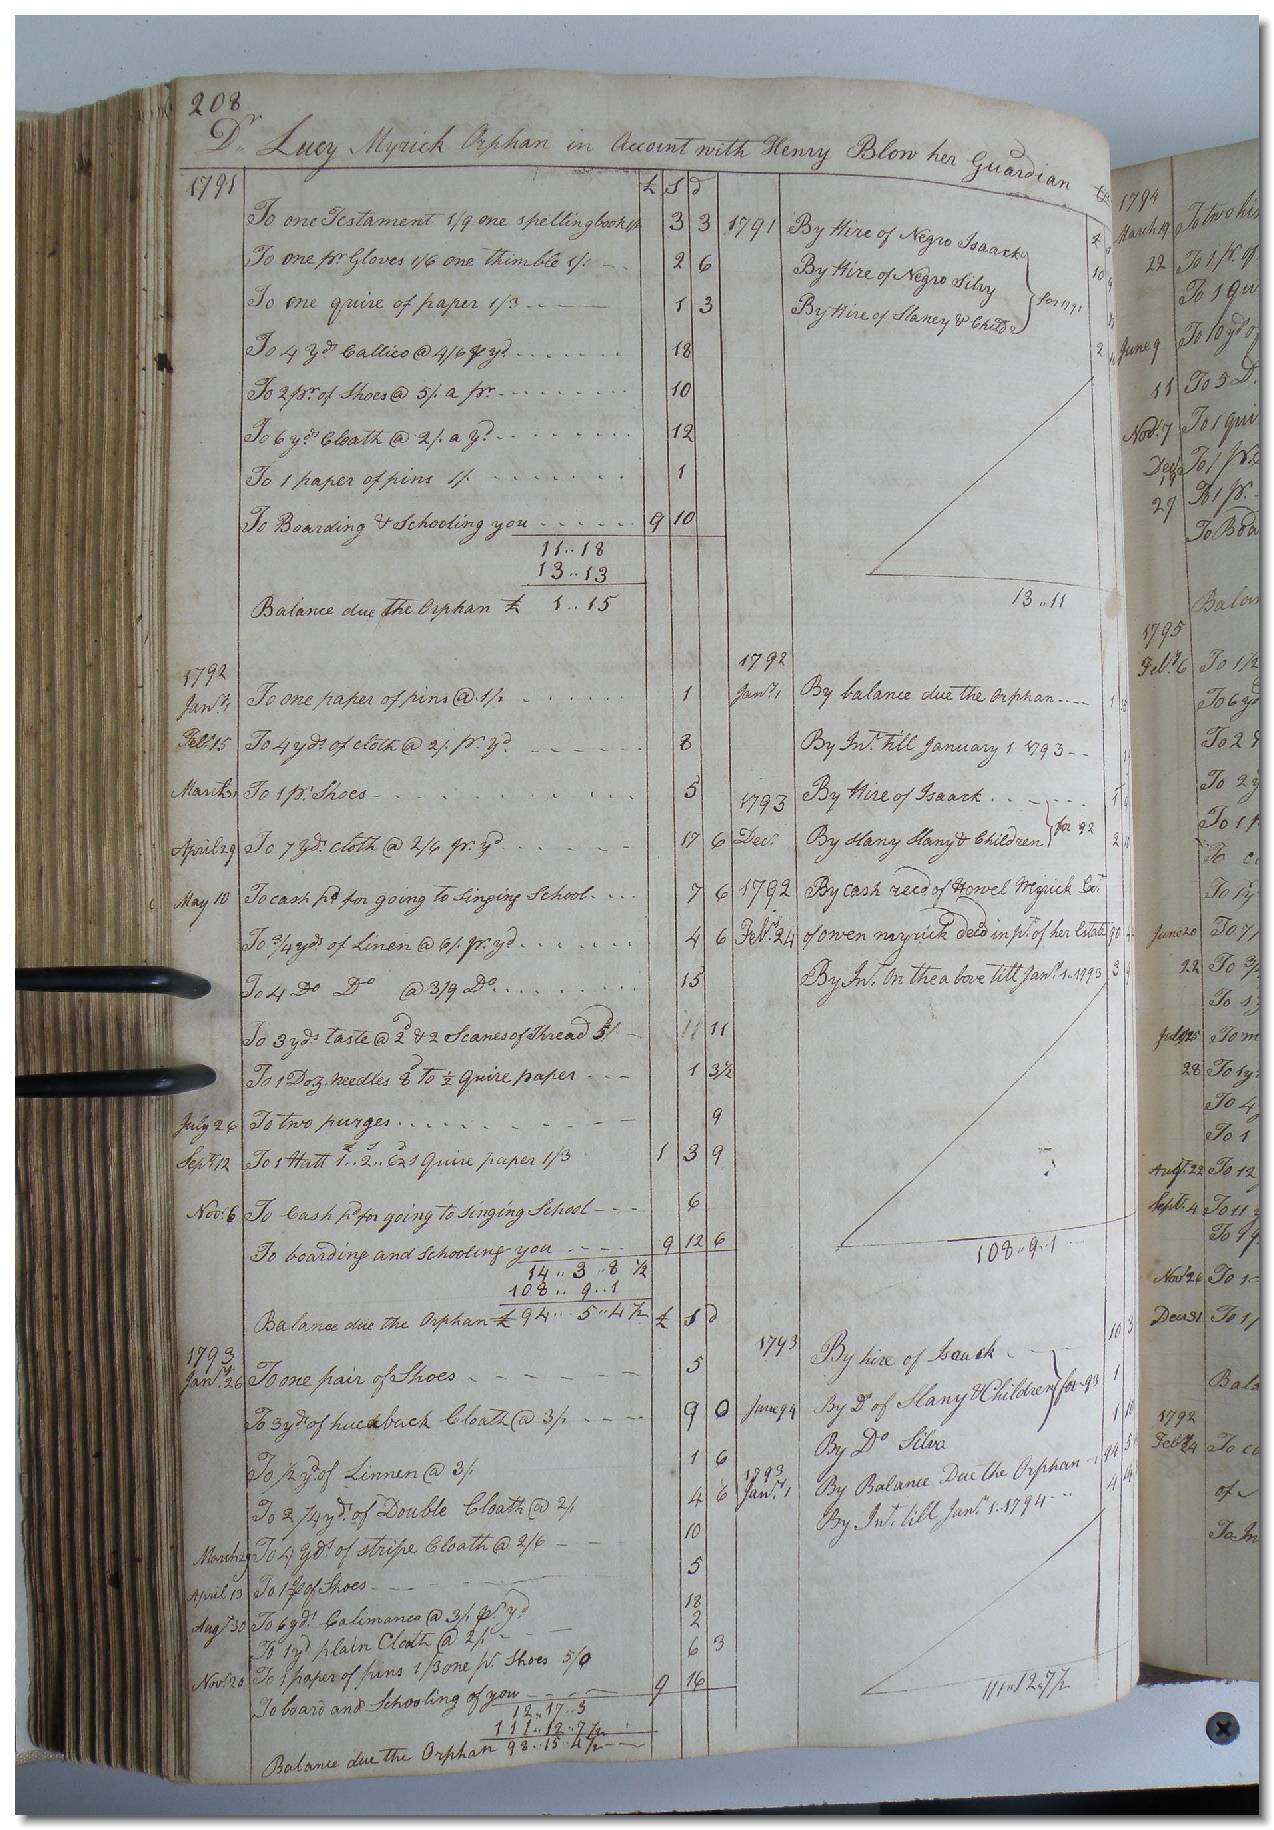 208
Dr. Lucy Myrick Orphan in Account with Henry Blow her Guardian Cr.
1791 £ S d
To one Testament 1/9 one spelling book 3 3
To one pr. Gloves 1/6 one thimble 1/. 2 6
To one quire of paper 1/3 1 3
To 4 Yds. Callico @ 4/6 pr yd 18
To 2 pr. of Shoes @ 5/. a pr. 10
To 6 yds Cloath @ 2/. a yd. 12
To 1 paper of pins 1/. 1
To Boarding & Schooling you 9 10
11..18
13..13
Balance due the Orphan £ 1..15
1791 By Hire of Negro Isaack
By Hire of Negro Silvy
By Hire of Slaney & Child
for 1791
13..11
1792
Jany. 1 To one paper of pins @ 1/. 1
Feb. 15 To 4 yds. of cloth @ 2/. pr. yd. 8
March 31 To 1 pr. Shoes 5
April 29 To 7 yds. cloth @ 2/6 pr. yd 17 6
May 10 To cash pd for going to singing School 7 6
To 3/4 yds. of Linen @ 6/. pr. yd 4 6
To 4 Do Do @ 3/9 Do. 15
To 3 yds. taste @ 2d & 2 Scanes of Thread 5/. 11 11
To 1 Doz. needles 8d To ½ quire paper 1 3½
July 26 To two purges 9
Sept. 12 To 1 Hatt 1..2..6 & 1 Quire paper 1/3 1 3 9
Nov. 6 To Cash pd for going to singing School 6
To boarding and schooling you 9 12 6
14..3..8½
108..9..1
Balance due the Orphan £ 94..5..4½ £ S d
1792
Jany. 1 By balance due the Orphan 1
By Int. till January 1 1793
1793 By Hire of Isaack
Decr. By Slany Slany & Children 2
for 92
1792 By cash recd of Howel Myrick Ext.
Feby. 24 of Owen myrick decd in pt. of her Estate
By Int. On the above till Jany. 1. 1793 3
108..9..1
1793
Jany. 26 To one pair of Shoes 5
To 3 yds of huckback Cloath @ 3/. 9 0
To ½ yd of Linnen @ 3/. 1 6
To 2 /4 yds. of Double Cloath @ 2/. 4 6
March 29 To 4 yds. of stripe Cloath @ 2/6 10
April 13 To 1 pr of Shoes 5
Augt. 30 To 6 yds. Calimanco @ 3/. pr. yd 18
To 1 yd plain Cloath @ 2/. 2
Nov. 20 To 1 paper of pins 1/3 one pr. Shoes 5/0 6 3
To board and Schooling of you 9 16
12..17..3
111..12..7½
Balance due the Orphan 98..15..4½
1793 By hire of Isaack 10 3
June 94 By Do of Slany & Children 1
for 93
By Do Silva 1 10
1793
Jany. 1 By Balance Due the Orphan 94 5
By Int. till Jany. 1. 1794 4 14
111..12..7½
1794
March 19 To two
22 To 1 pr. of
To 1 qu
June 9 To 10 yds
11 To 5 D.
Nov. 7 To 1 qui
Decr. 19 To 1 pr.
29 To 1 pr.
To Boa
Balan
1795
Feb. 6 To 1½
To 6 yd
To 2
To 2 y
To 1
To
To 1 y
June 20 To 7
22 To 3
To 1
July 25 To m
28 To 1 y
To 4
To 1
Augt. 22 To 12
Sept. 4 To 11
To 9
Nov. 26 To 1
Decr 31 To 1
Bala
1792
Feby. 24 To ca
of
To In